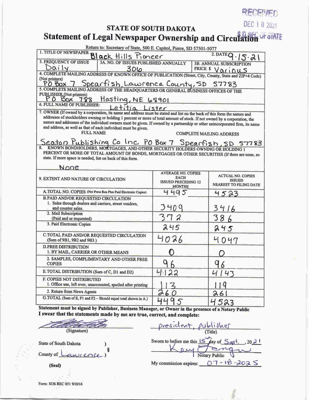 RECEIVED
DEC 18 2021
STATE OF SOUTH DAKOTA
Statement of Legal Newspaper Ownership and Circulation
Return to: Secretary of State, 500 E. Capitol, Pierre, SD 57501-5077
1. TITLE OF NEWSPAPER Black Hills Pioneer 2. DATE 9-15-21
3. FREQUENCY OF ISSUE Daily 3A. NO. OF ISSUES PUBLISHED ANNUALLY 306 3B. ANNUAL SUBSCRIPTION PRICE $ Various
4. COMPLETE MAILING ADDRESS OF KNOWN OFFICE OF PUBLICATION (Street, City, County, State and ZIP+4 Code) (Not printers)
PO Box 7 Spearfish, Lawrence County, SD 57783
5. COMPLETE MAILING ADDRESS OF THE HEADQUARTERS OR GENERAL BUSINESS OFFICES OF THE PUBLISHER (Not printers)
PO Box 788 Hasting, NE 68901
6. FULL NAME OF PUBLISHER: Letitia Lister
7. OWNER (If owned by a corporation, its name and address must be stated and list on the back of this form the names and
addresses of stockholders owning or holding 1 percent or more of total amount of stock. If not owned by a corporation, the
names and addresses of the individual owners must be given. If owned by a partnership or other unincorporated firm, its name
and address, as well as that of each individual must be given.
FULL NAME COMPLETE MAILING ADDRESS
Seaton Publishing Co Inc. PO Box 7 Spearfish, SD 57783
8. KNOWN BONDHOLDERS, MORTGAGES, AND OTHER SECURITY HOLDERS OWNING OR HOLDING 1
PERCENT OR MORE OF TOTAL AMOUNT OF BONDS, MORTGAGES OR OTHER SECURITIES (If there are none, so
state. If more space is needed, list on back of this form.
None
9. EXTENT AND NATURE OF CIRCULATION AVERAGE NO. COPIES EACH ISSUED PRECEDING 12 MONTHS ACTUAL NO. COPIES ISSUED NEAREST TO FILING DATE
A. TOTAL NO. COPIES (Net Press Run Plus Paid Electronic Copies) 4495 4523
B. PAID AND/OR REQUESTED CIRCULATION
1. Sales through dealers and carriers, street vendors, and counter sales 3409 3416
2. Mail Subscription (Paid and or requested) 372 386
3. Paid Electronic Copies 245 245
C. TOTAL PAID AND/OR REQUESTED CIRCULATION (Sum of 9B1, 9B2 and 9B3) 4026 4047
D. FREE DISTRIBUTION
1. BY MAIL, CARRIER OR OTHER MEANS 0 0
2. SAMPLES, COMPLIMENTARY AND OTHER FREE COPIES 96 96
E. TOTAL DISTRIBUTION (Sum of C, D1 and D2) 4122 4143
F. COPIES NOT DISTRIBUTED
1. Office use, left over, unaccounted, spoiled after printing 113 119
2. Return from News Agents 260 261
G. TOTAL (Sum of E, F1 and F2 - Should equal total shown in A.) 4495 4523
Statement must be signed by Publisher, Business Manager, or Owner in the presence of a Notary Public
I swear that the statements made by me are true, correct, and complete:
president, publisher
(Signature) (Title)
State of South Dakota )
Sworn to before me this 15 day of Sept. 2021
County of Lawrence )
Notary Public
(Seal) My commission expires: 07-18-2025